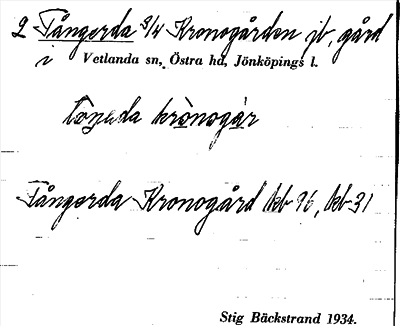 2 Fångerda 3/4 Kronogården jb, gård
i Vetlanda sn, Östra hd, Jönköpings l.
krònogár
Fångerda Kronogård kb 96, kb 31
Stig Bäckstrand 1934.